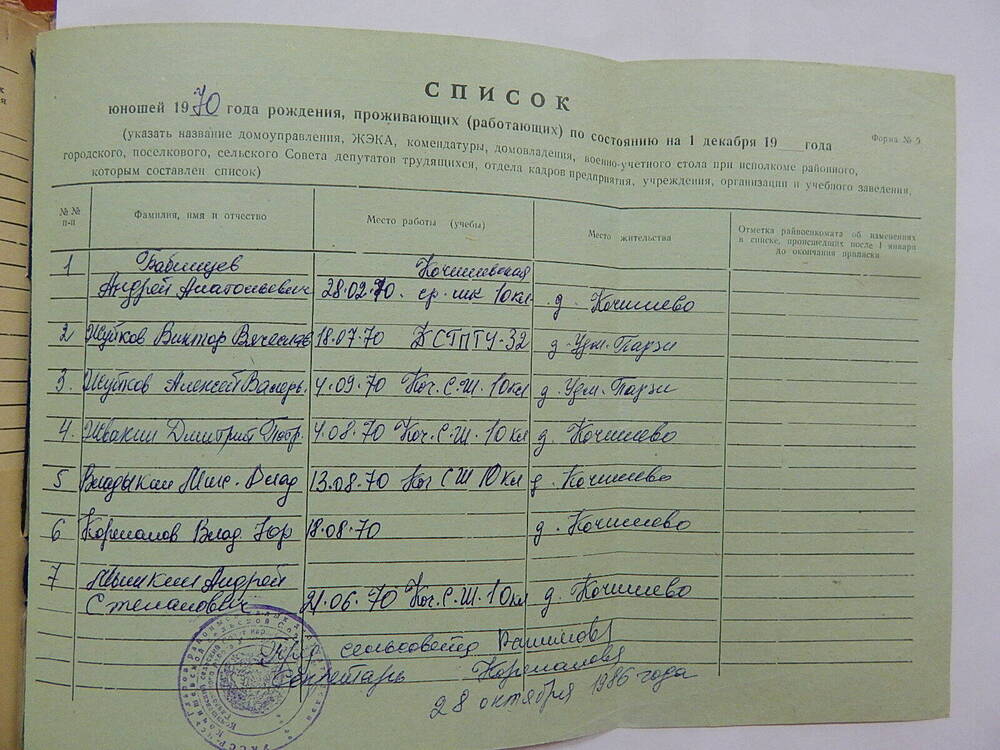 СПИСОК
юношей 1970 года рождения, проживающих (работающих) по состоянию на 1 декабря 19 года
Форма № 5
(указать название домоуправления, ЖЭКА, комендатуры, домовладения, военно-учетного стола при исполкоме районного,
городского, поселкового, сельского Совета депутатов трудящихся, отдела кадров предприятия, учреждения, организации и учебного заведения,
которым составлен список)
№№ п-п
Фамилия, имя и отчество
Место работы (учебы)
Место жительства
Отметка райвоенкомата об изменениях
в списке, происшедших после 1 января
до окончания приписки
1 Бабинцев Кочишевская
Андрей Анатольевич 28.02.70. ср. шк 10кл д. Кочишево
2 Жуйков Виктор Вячеслав 18.07.70 СПТУ-32 д. Удм. Парзи
3. Жуйков Алексей Валерь. 4.09.70 Коч. С.Ш. 10кл д. Удм. Парзи
4. Ивакин Дмитрий Петр. 4.08.70 Коч. С.Ш. 10кл д. Кочишево
5 Владыкин Мих. Влад 13.08.70 Коч СШ 10кл д. Кочишево
6 Корепанов Влад Юр 18.08.70 д. Кочишево
7 Мышкин Андрей
Степанович 21.06.70 Коч. С.Ш. 10кл д. Кочишево
сельсовета
Секретарь Корепанова
28 октября 1986 года